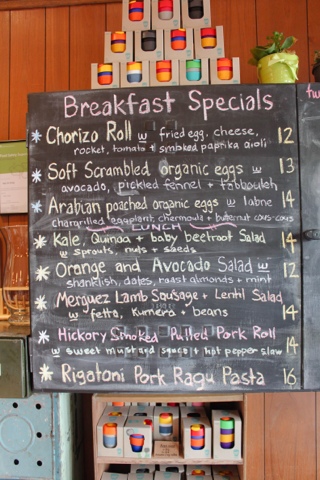 Breakfast Specials
Chorizo Roll w fried egg, cheese, 12
rocket, tomato + smoked paprika aioli
Soft Scrambled organic eggs w 13
avocado, pickled fennel + tabbouleh
Arabian poached organic eggs w labne 14
chargrilled eggplant, chermoula + buternut cous-cous
LUNCH
Kale, Quinoa + baby beetroot Salad 14
w sprouts, nuts + seeds
Orange and Avocado Salad w 12
shanklish, dates, roast almonds + mint
Merguez Lamb Sausage + Lentil Salad
w fetta, kumera + beans 14
Hickory Smoked Pulled Pork Roll
w sweet mustard sauce + hot pepper slaw 14
Rigatoni Pork Ragu Pasta 16